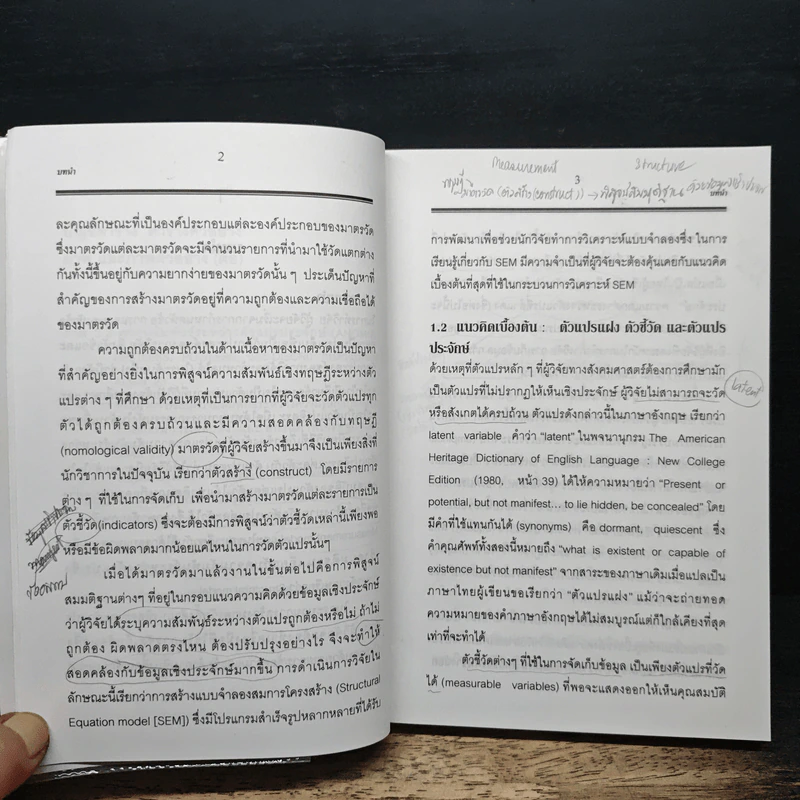 2
บทนำ
ละคุณลักษณะที่เป็นองค์ประกอบแต่ละองค์ประกอบของมาตรวัด
ซึ่งมาตรวัดแต่ละมาตรวัดจะมีจำนวนรายการที่นำมาใช้วัดแตกต่าง
กันทั้งนี้ขึ้นอยู่กับความยากง่ายของมาตรวัดนั้น ๆ ประเด็นปัญหาที่
สำคัญของการสร้างมาตรวัดอยู่ที่ความถูกต้องและความเชื่อถือได้
ของมาตรวัด
ความถูกต้องครบถ้วนในด้านเนื้อหาของมาตรวัดเป็นปัญหา
ที่สำคัญอย่างยิ่งในการพิสูจน์ความสัมพันธ์เชิงทฤษฎีระหว่างตัว
แปรต่าง ๆ ที่ศึกษา ด้วยเหตุที่เป็นการยากที่ผู้วิจัยจะวัดตัวแปรทุก
ตัวได้ถูกต้องครบถ้วนและมีความสอดคล้องกับทฤษฎี
(nomological validity) มาตรวัดที่ผู้วิจัยสร้างขึ้นมาจึงเป็นเพียงสิ่งที่
นักวิชาการในปัจจุบัน เรียกว่าตัวสร้าง (construct) โดยมีรายการ
ต่าง ๆ ที่ใช้ในการจัดเก็บ เพื่อนำมาสร้างมาตรวัดแต่ละรายการเป็น
ตัวชี้วัด(indicators) ซึ่งจะต้องมีการพิสูจน์ว่าตัวชี้วัดเหล่านี้เพียงพอ
หรือมีข้อผิดพลาดมากน้อยแค่ไหนในการวัดตัวแปรนั้นๆ
เมื่อได้มาตรวัดมาแล้วงานในขั้นต่อไปคือการพิสูจน์
สมมติฐานต่างๆ ที่อยู่ในกรอบแนวความคิดด้วยข้อมูลเชิงประจักษ์
ว่าผู้วิจัยได้ระบุความสัมพันธ์ระหว่างตัวแปรถูกต้องหรือไม่ ถ้าไม่
ถูกต้อง ผิดพลาดตรงไหน ต้องปรับปรุงอย่างไร จึงจะทำให้
สอดคล้องกับข้อมูลเชิงประจักษ์มากขึ้น การดำเนินการวิจัยใน
ลักษณะนี้เรียกว่าการสร้างแบบจำลองสมการโครงสร้าง (Structural
Equation model [SEM]) ซึ่งมีโปรแกรมสำเร็จรูปหลากหลายที่ได้รับ
Measurement Structure
3
(construct) →
บทนำ
การพัฒนาเพื่อช่วยนักวิจัยทำการวิเคราะห์แบบจำลองซึ่ง ในการ
เรียนรู้เกี่ยวกับ SEM มีความจำเป็นที่ผู้วิจัยจะต้องคุ้นเคยกับแนวคิด
เบื้องต้นที่สุดที่ใช้ในกระบวนการวิเคราะห์ SEM
1.2 แนวคิดเบื้องต้น : ตัวแปรแฝง ตัวชี้วัด และตัวแปร
ประจักษ์
ด้วยเหตุที่ตัวแปรหลัก ๆ ที่ผู้วิจัยทางสังคมศาสตร์ต้องการศึกษามัก
เป็นตัวแปรที่ไม่ปรากฏให้เห็นเชิงประจักษ์ ผู้วิจัยไม่สามารถจะวัด latent
หรือสังเกตได้ครบถ้วน ตัวแปรดังกล่าวนี้ในภาษาอังกฤษ เรียกว่า
latent variable คำว่า “latent” ในพจนานุกรม The American
Heritage Dictionary of English Language : New College
Edition (1980, หน้า 39) ได้ให้ความหมายว่า “Present or
potential, but not manifest... to lie hidden, be concealed” โดย
มีคำที่ใช้แทนกันได้ (synonyms) คือ dormant, quiescent ซึ่ง
คำคุณศัพท์ทั้งสองนี้หมายถึง “what is existent or capable of
existence but not manifest” จากสาระของภาษาเดิมเมื่อแปลเป็น
ภาษาไทยผู้เขียนขอเรียกว่า “ตัวแปรแฝง” แม้ว่าจะถ่ายทอด
ความหมายของคำภาษาอังกฤษได้ไม่สมบูรณ์แต่ก็ใกล้เคียงที่สุด
เท่าที่จะทำได้
ตัวชี้วัดต่างๆ ที่ใช้ในการจัดเก็บข้อมูล เป็นเพียงตัวแปรที่วัด
ได้ (measurable variables) ที่พอจะแสดงออกให้เห็นคุณสมบัติ